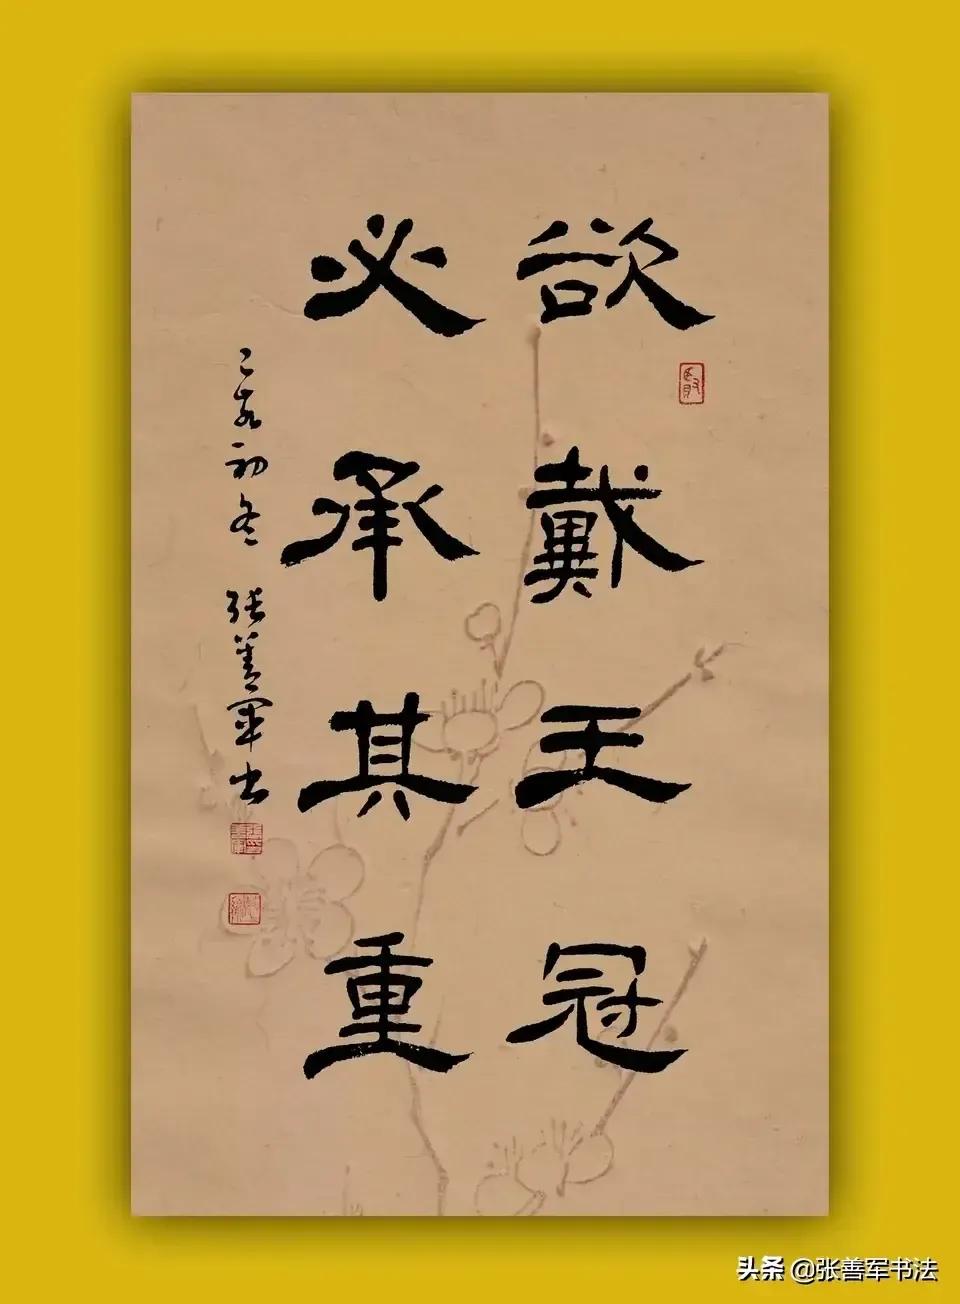 欲戴王冠
必承其重
己亥初冬 张善军书
头条 @张善军书法